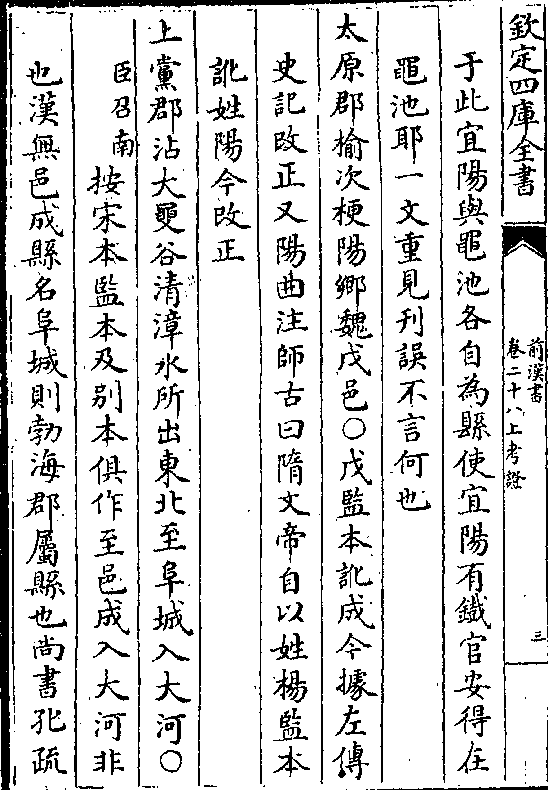 欽定四庫全書
前漢書
卷二十八上考證
三
于此宜陽與黽池各自為縣使宜陽有鐵官安得在
黽池耶一文重見刋誤不言何也
太原郡榆次梗陽鄉魏戊邑○戊監本訛成今據左傳
史記改正又陽曲注師古曰隋文帝自以姓楊監本
訛姓陽今改正
上黨郡沾大黽谷清漳水所出東北至阜城入大河○
臣召南按宋本監本及别本俱作至邑成入大河非
也漢無邑成縣名阜城則勃海郡屬縣也尚書孔疏